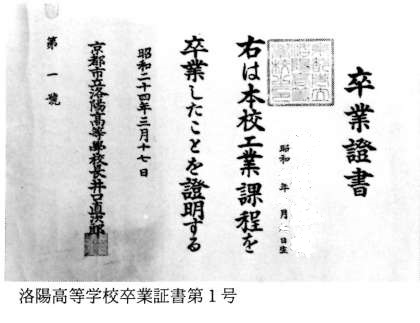 卒業證書
昭和 年 月 日生
右は本校工業課程を
卒業したことを證明する
昭和二十四年三月十七日
京都市立洛陽高等學校長井口直次郎
第一號
洛陽高等学校卒業証書第1号